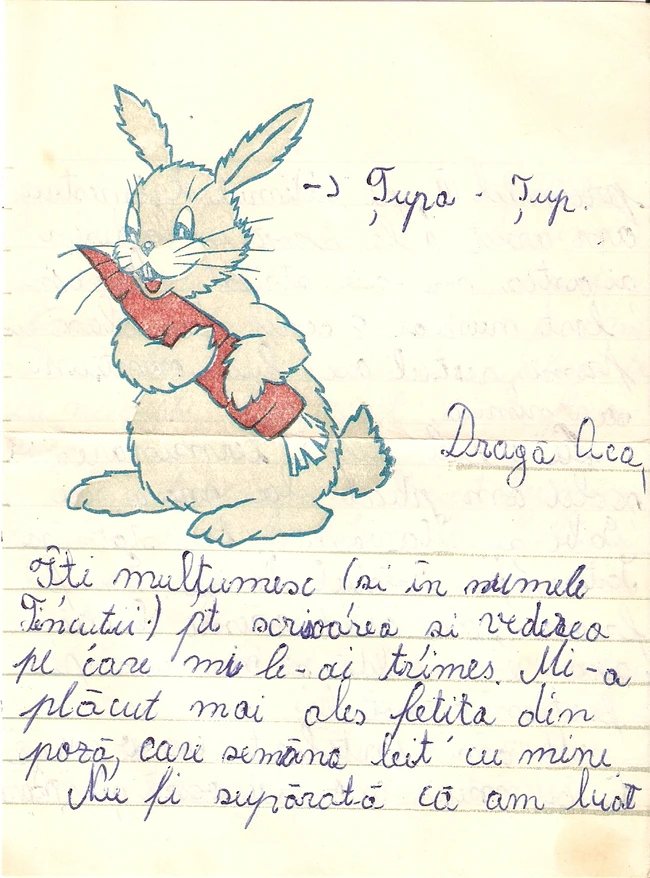 -> Țupa - Țup.
Dragă Aca,
Îti mulțumesc (si în numele
Tincutii) pt scrisoarea si vederea
pe care mi le-ai trimes. Mi-a
plăcut mai ales fetita din
poză, care semăna leit cu mine
Nu fi supărată că am luat